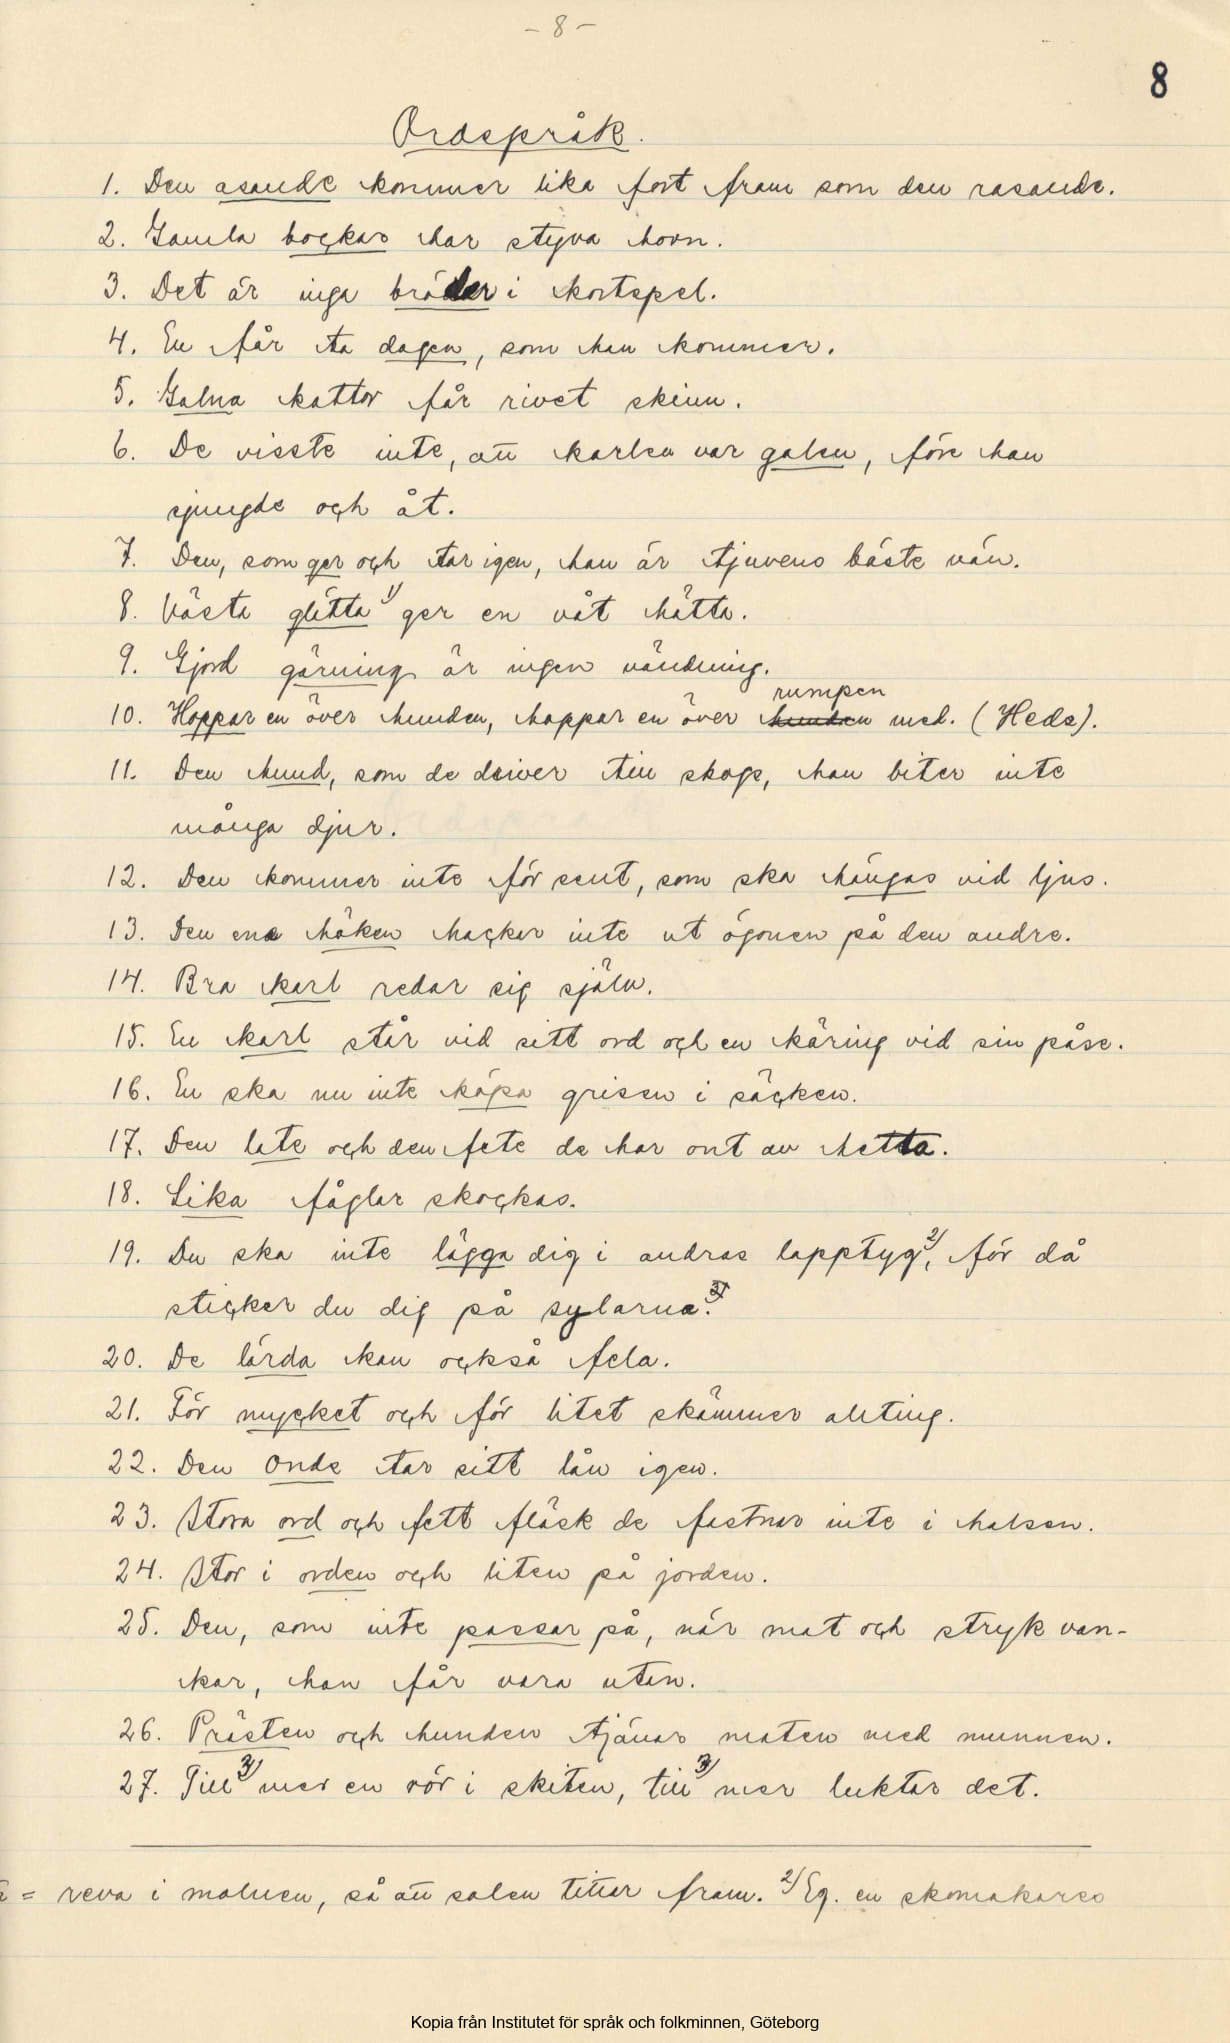 - 8 -
8
Ordspråk.
1. Den asande kommer lika fort fram som den rasande.
2. Gamla bockar har styva horn.
3. Det är inga bröder i kortspel.
4. En får ta dagen, som han kommer.
5. Galna kattor får rivet skinn.
6. De visste inte, att karlen var galen, före han
sjungde och åt.
7. Den, som ger och tar igen, han är tjuvens bäste vän.
8. Västa glätta 1) ger en våt hätta.
9. Gjord gärning är ingen vändning.
rumpen
10. Hoppar en över hunden, hoppar en över hunden med. (Hede).
11. Den hund, som de driver till skogs, han biter inte
många djur.
12. Den kommer inte för sent, som ska hängas vid ljus.
13. Den ena höken hackar inte ut ögonen på den andre.
14. Bra karl redar sig själv.
15. En karl står vid sitt ord och en käring vid sin påse.
16. En ska nu inte köpa grisen i säcken.
17. Den late och den fete de har ont av hetta.
18. Lika fåglar skockas.
19. Du ska inte lägga dig i andras lapptyg 2), för då
sticker du dig på sylarna.
20. De lärda kan också fela.
21. För mycket och för litet skämmer allting.
22. Den Onde tar sitt lån igen.
23. Stora ord och fett fläsk de fastnar inte i halsen.
24. Stor i orden och liten på jorden.
25. Den, som inte passar på, när mat och stryk van-
kar, han får vara utan.
26. Prästen och hunden tjänar maten med munnen.
27. Till 3) mer en rör i skiten, till 3) mer luktar det.
= reva i molnen, så att solen tittar fram. 2) Eg. en skomakares
Kopia från Institutet för språk och folkminnen, Göteborg